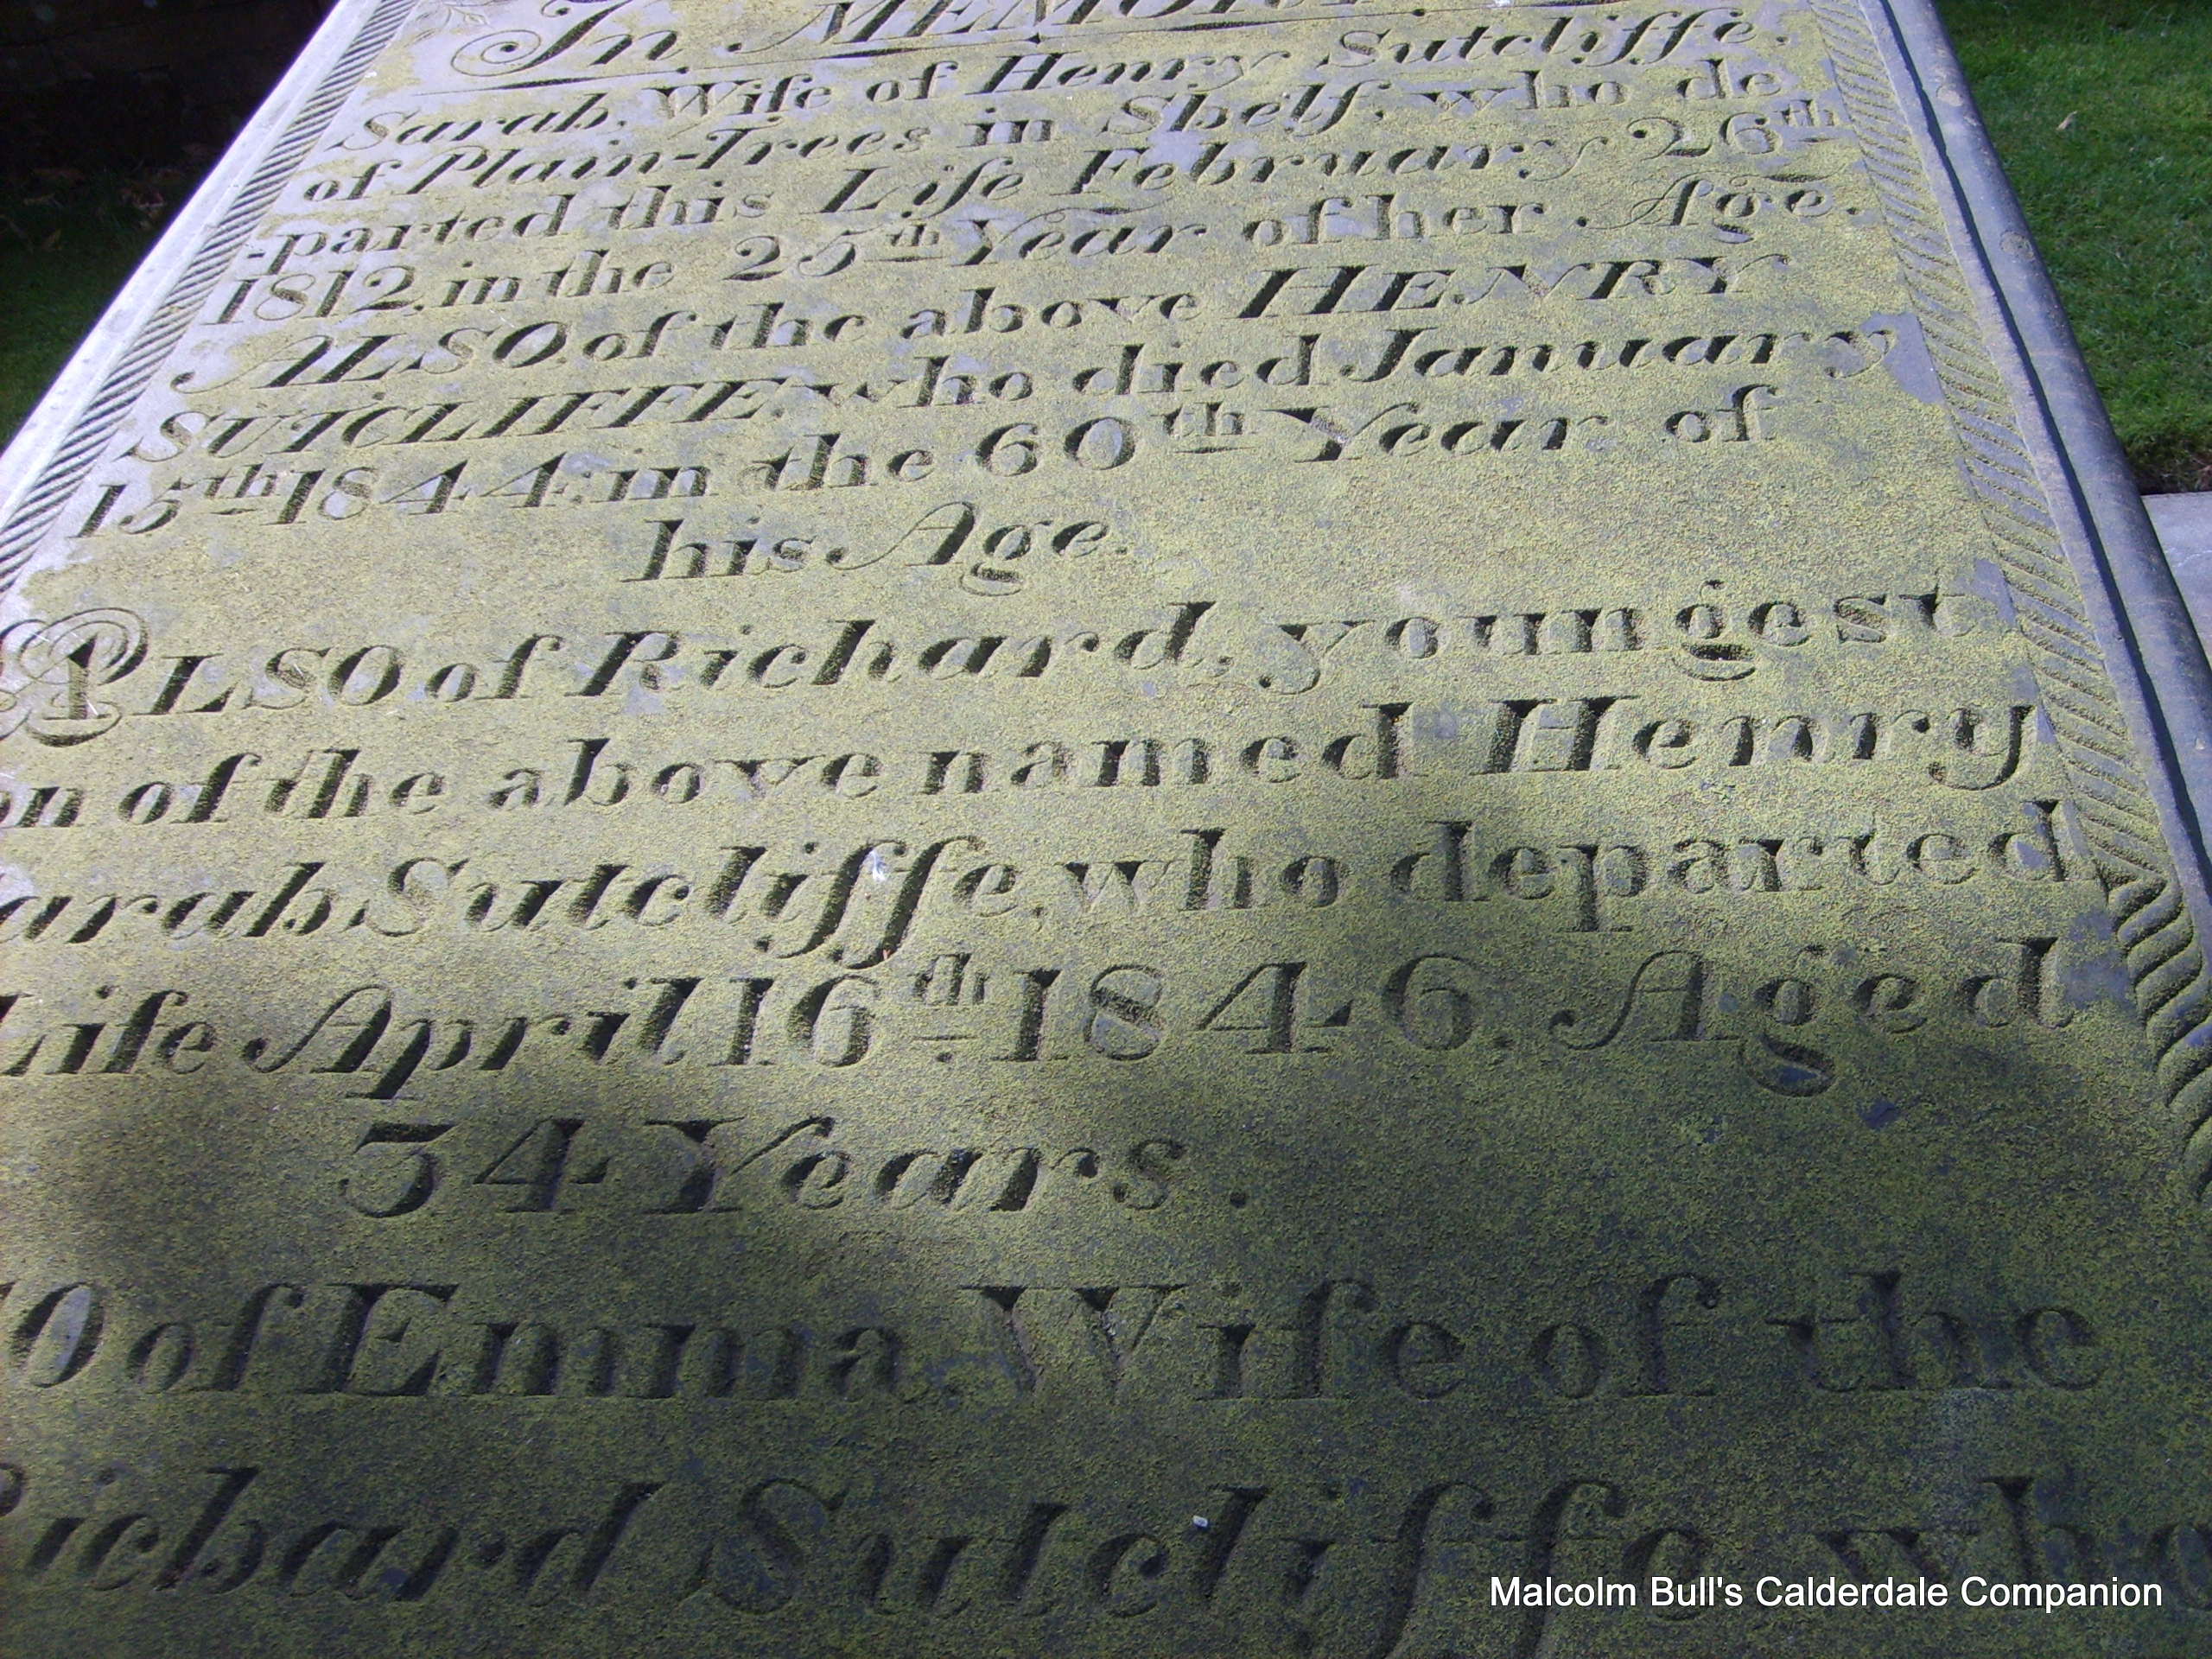 In MEMORY
Sarah, Wife of Henry Sutcliffe,
of Plain-Trees in Shelf, who de
-parted this Life February 26th
1812, in the 25th Year of her Age.
ALSO, of the above HENRY
SUTCLIFFE, who died January
15th 1844; in the 60th Year of
his Age.
ALSO of Richard, youngest
on of the above named Henry
arah Sutcliffe, who departed
Life April 16th 1846, Aged
34 Years.
O of Emma, Wife of the
Richard Sutcliffe, who
Malcolm Bull's Calderdale Companion